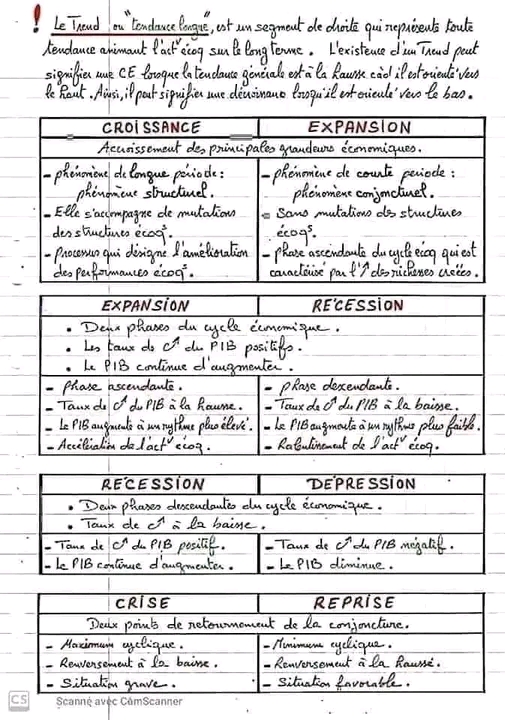 ! Le Trend ou "tendance longue", est un segment de droite qui représente toute
tendance animant l'actᵗ écoq sur le long terme. L'existence d'un Trend peut
signifier une CE lorsque la tendance générale est à la hausse càd il est orienté vers
le haut. Ainsi, il peut signifier une décroissance lorsqu'il est orienté vers le bas.
CROISSANCE EXPANSION
Accroissement des principales grandeurs économiques.
- phénomène de longue période : - phénomène de courte période :
phénomène structurel. phénomène conjoncturel.
- Elle s'accompagne de mutations - Sans mutations des structures
des structures écoqˢ. écoqˢ.
- processus qui désigne l'amélioration - phase ascendante du cycle écoq qui est
des performances écoqˢ. caractérisé par l'↗ des richesses créées.
EXPANSION RÉCESSION
• Deux phases du cycle économique.
• Les taux de C↗ du PIB positifs.
• Le PIB continue d'augmenter.
- phase ascendante. - phase descendante.
- Taux de C↗ du PIB à la hausse. - Taux de C↗ du PIB à la baisse.
- Le PIB augmente à un rythme plus élevé. - Le PIB augmente à un rythme plus faible.
- Accélération de l'actᵛ écoq. - Ralentissement de l'actᵛ écoq.
RÉCESSION DÉPRESSION
• Deux phases descendantes du cycle économique.
• Taux de C↗ à la baisse.
- Taux de C↗ du PIB positif. - Taux de C↗ du PIB négatif.
- Le PIB continue d'augmenter. - Le PIB diminue.
CRISE REPRISE
Deux points de retournement de la conjoncture.
- Maximum cyclique. - Minimum cyclique.
- Renversement à la baisse. - Renversement à la hausse.
- Situation grave. - Situation favorable.
CS Scanné avec CamScanner